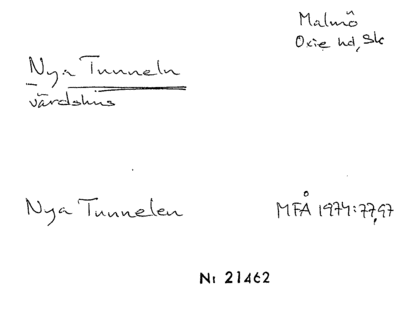 Malmö
Oxie hd, Sk
Nya Tunneln
värdshus
Nya Tunnelen
MFÅ 1974:77,97
Nr 21462